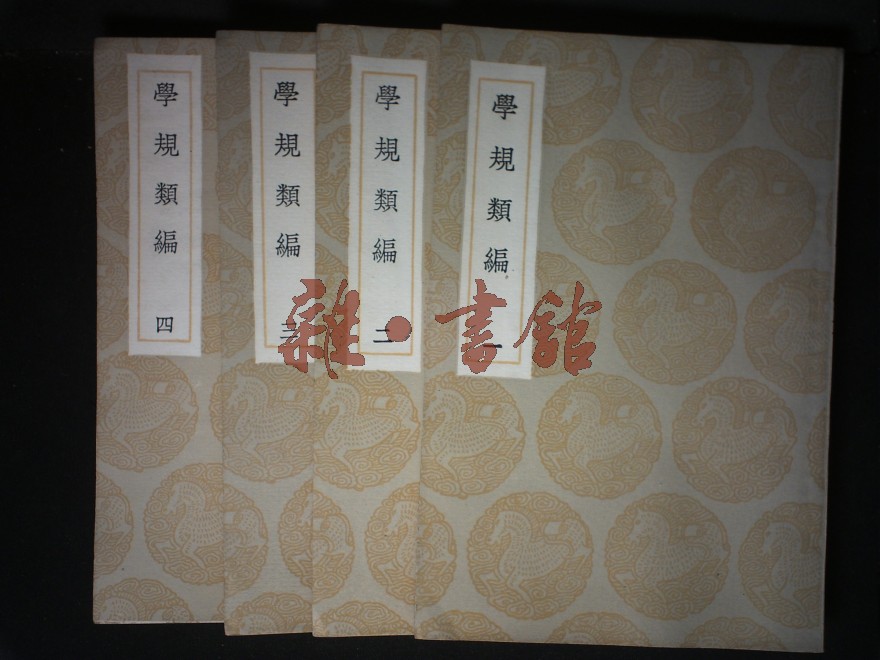 學規類編 一
學規類編 二
學規類編 三
學規類編 四
雜·書館